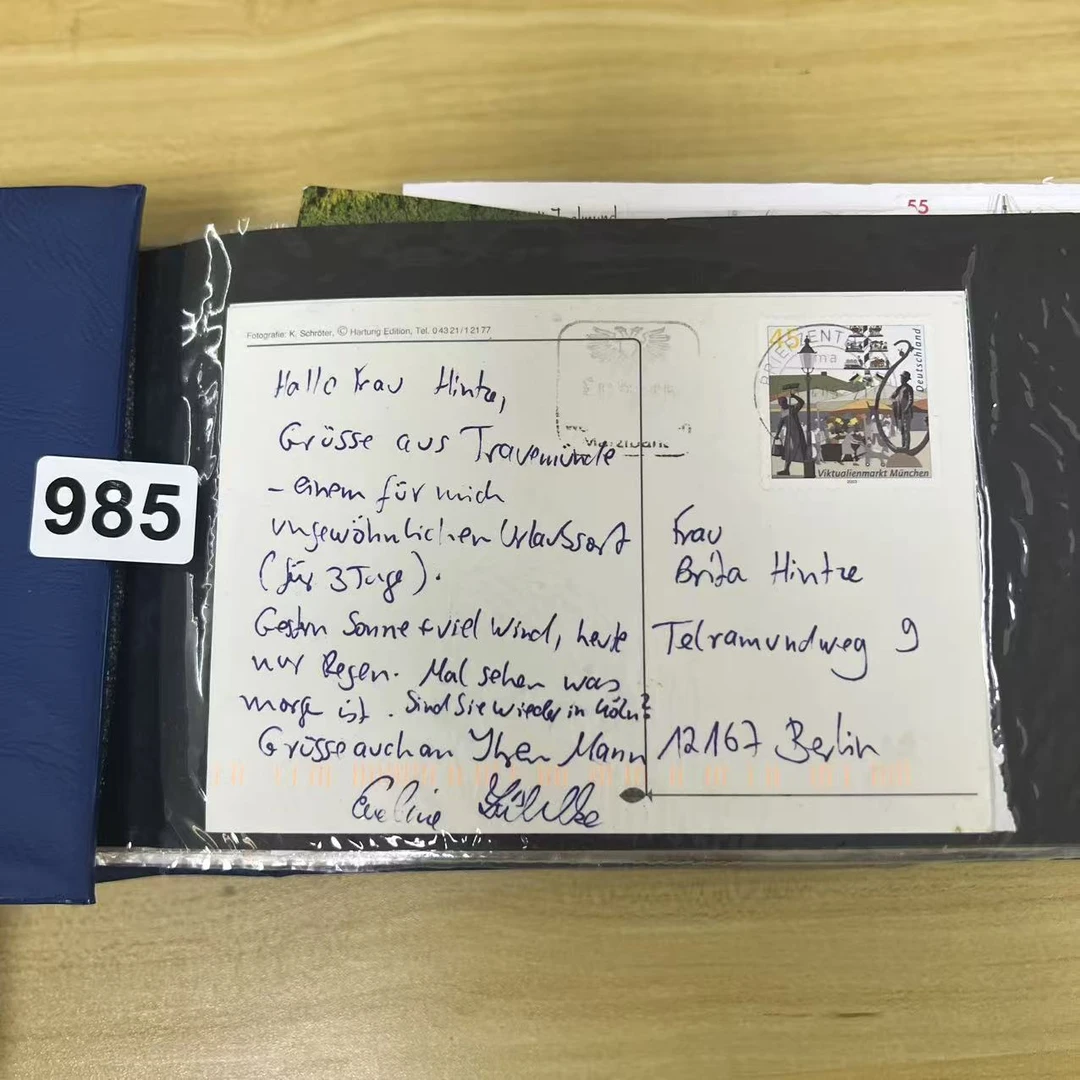 55
985
Fotografie: K. Schröter, © Hartung Edition, Tel. 0 43 21/1 21 77
45
Deutschland
BRIEFZENT
Viktualienmarkt München
Hallo Frau Hintze,
Grüsse aus Travemünde
– einem für mich
ungewöhnlichen Urlaubsort
(für 3 Tage).
Gestern Sonne + viel Wind, heute
nur Regen. Mal sehen was
morgen ist. Sind Sie wieder in Köln?
Grüsse auch an Ihren Mann
Eveline
Frau
Brita Hintze
Telramundweg 9
12167 Berlin